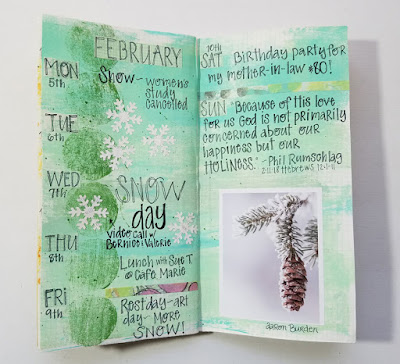 FEBRUARY
MON
5th
Snow - women's
study
cancelled
TUE
6th
WED
7th
SNOW
day
video call w/
Bernice & Valerie
THU
8th
Lunch with Sue T.
@ Cafe Marie
FRI
9th
Restday-art
day- More
SNOW!
10th
SAT - Birthday party for
my mother-in-law #80!
SUN "Because of His love
for us God is not primarily
concerned about our
happiness but our
HOLINESS." -Phil Rumschlag
2·11·18 Hebrews 12:1-11
aaron Burden